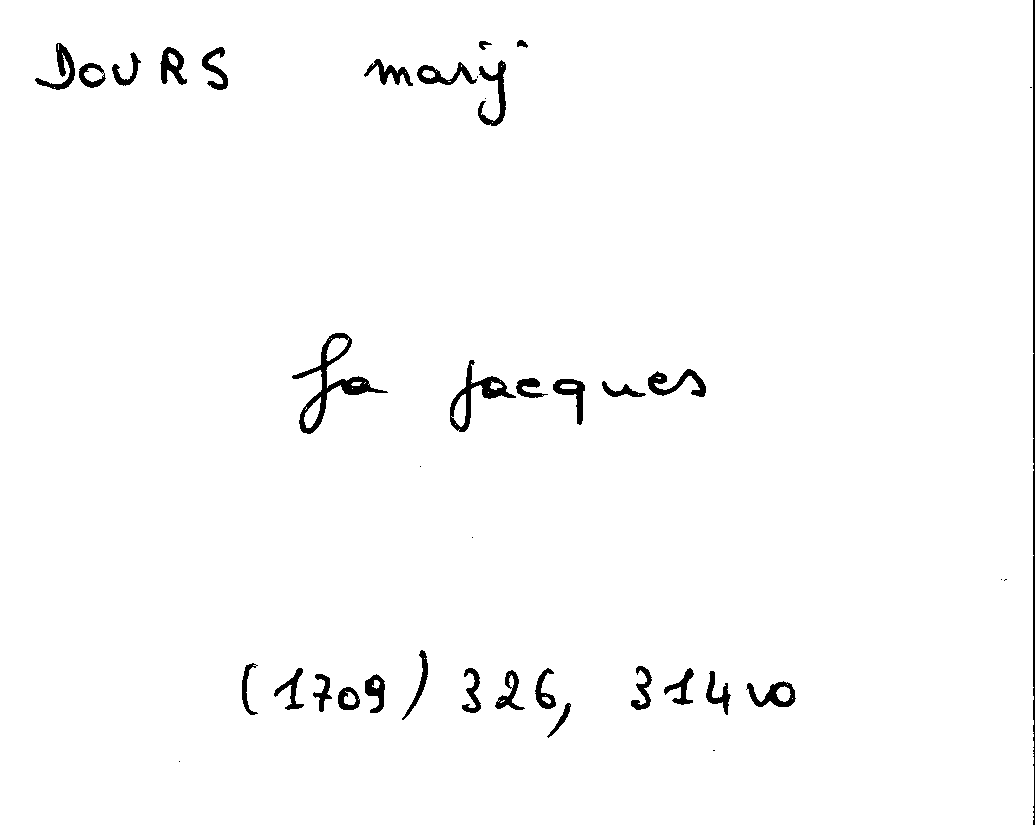 DOURS marij
fa jacques
(1709) 326, 314 vo